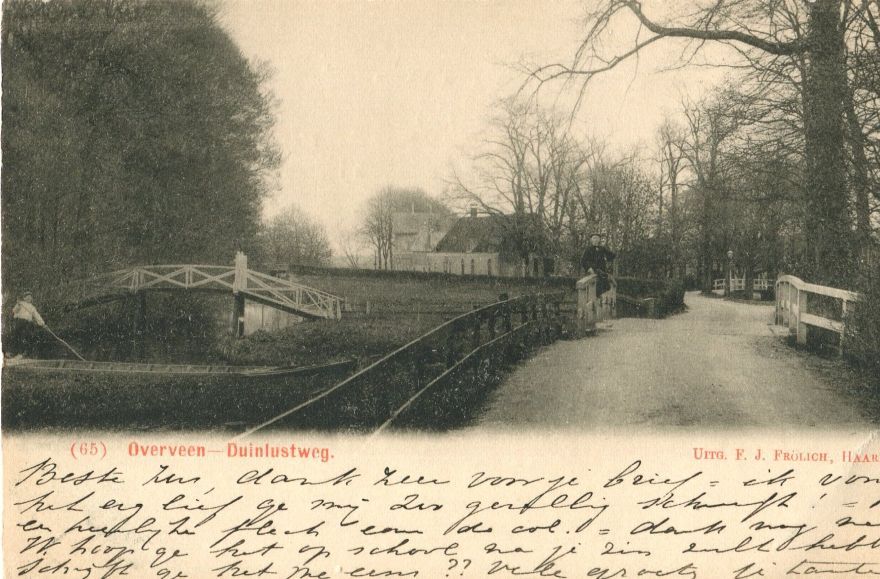 (65) Overveen—Duinlustweg.
UITG. F. J. FRÖLICH, HAAR
Beste Zus, dank zeer voor je brief = ik von
het erg lief ge mij zoo gezellig schrijft! =
en heerlijke plek aan de col. = dank nog
Ik hoop ge het op school na je zin zult heb
Schrijft ge het me eens ?? Vele groet je tante